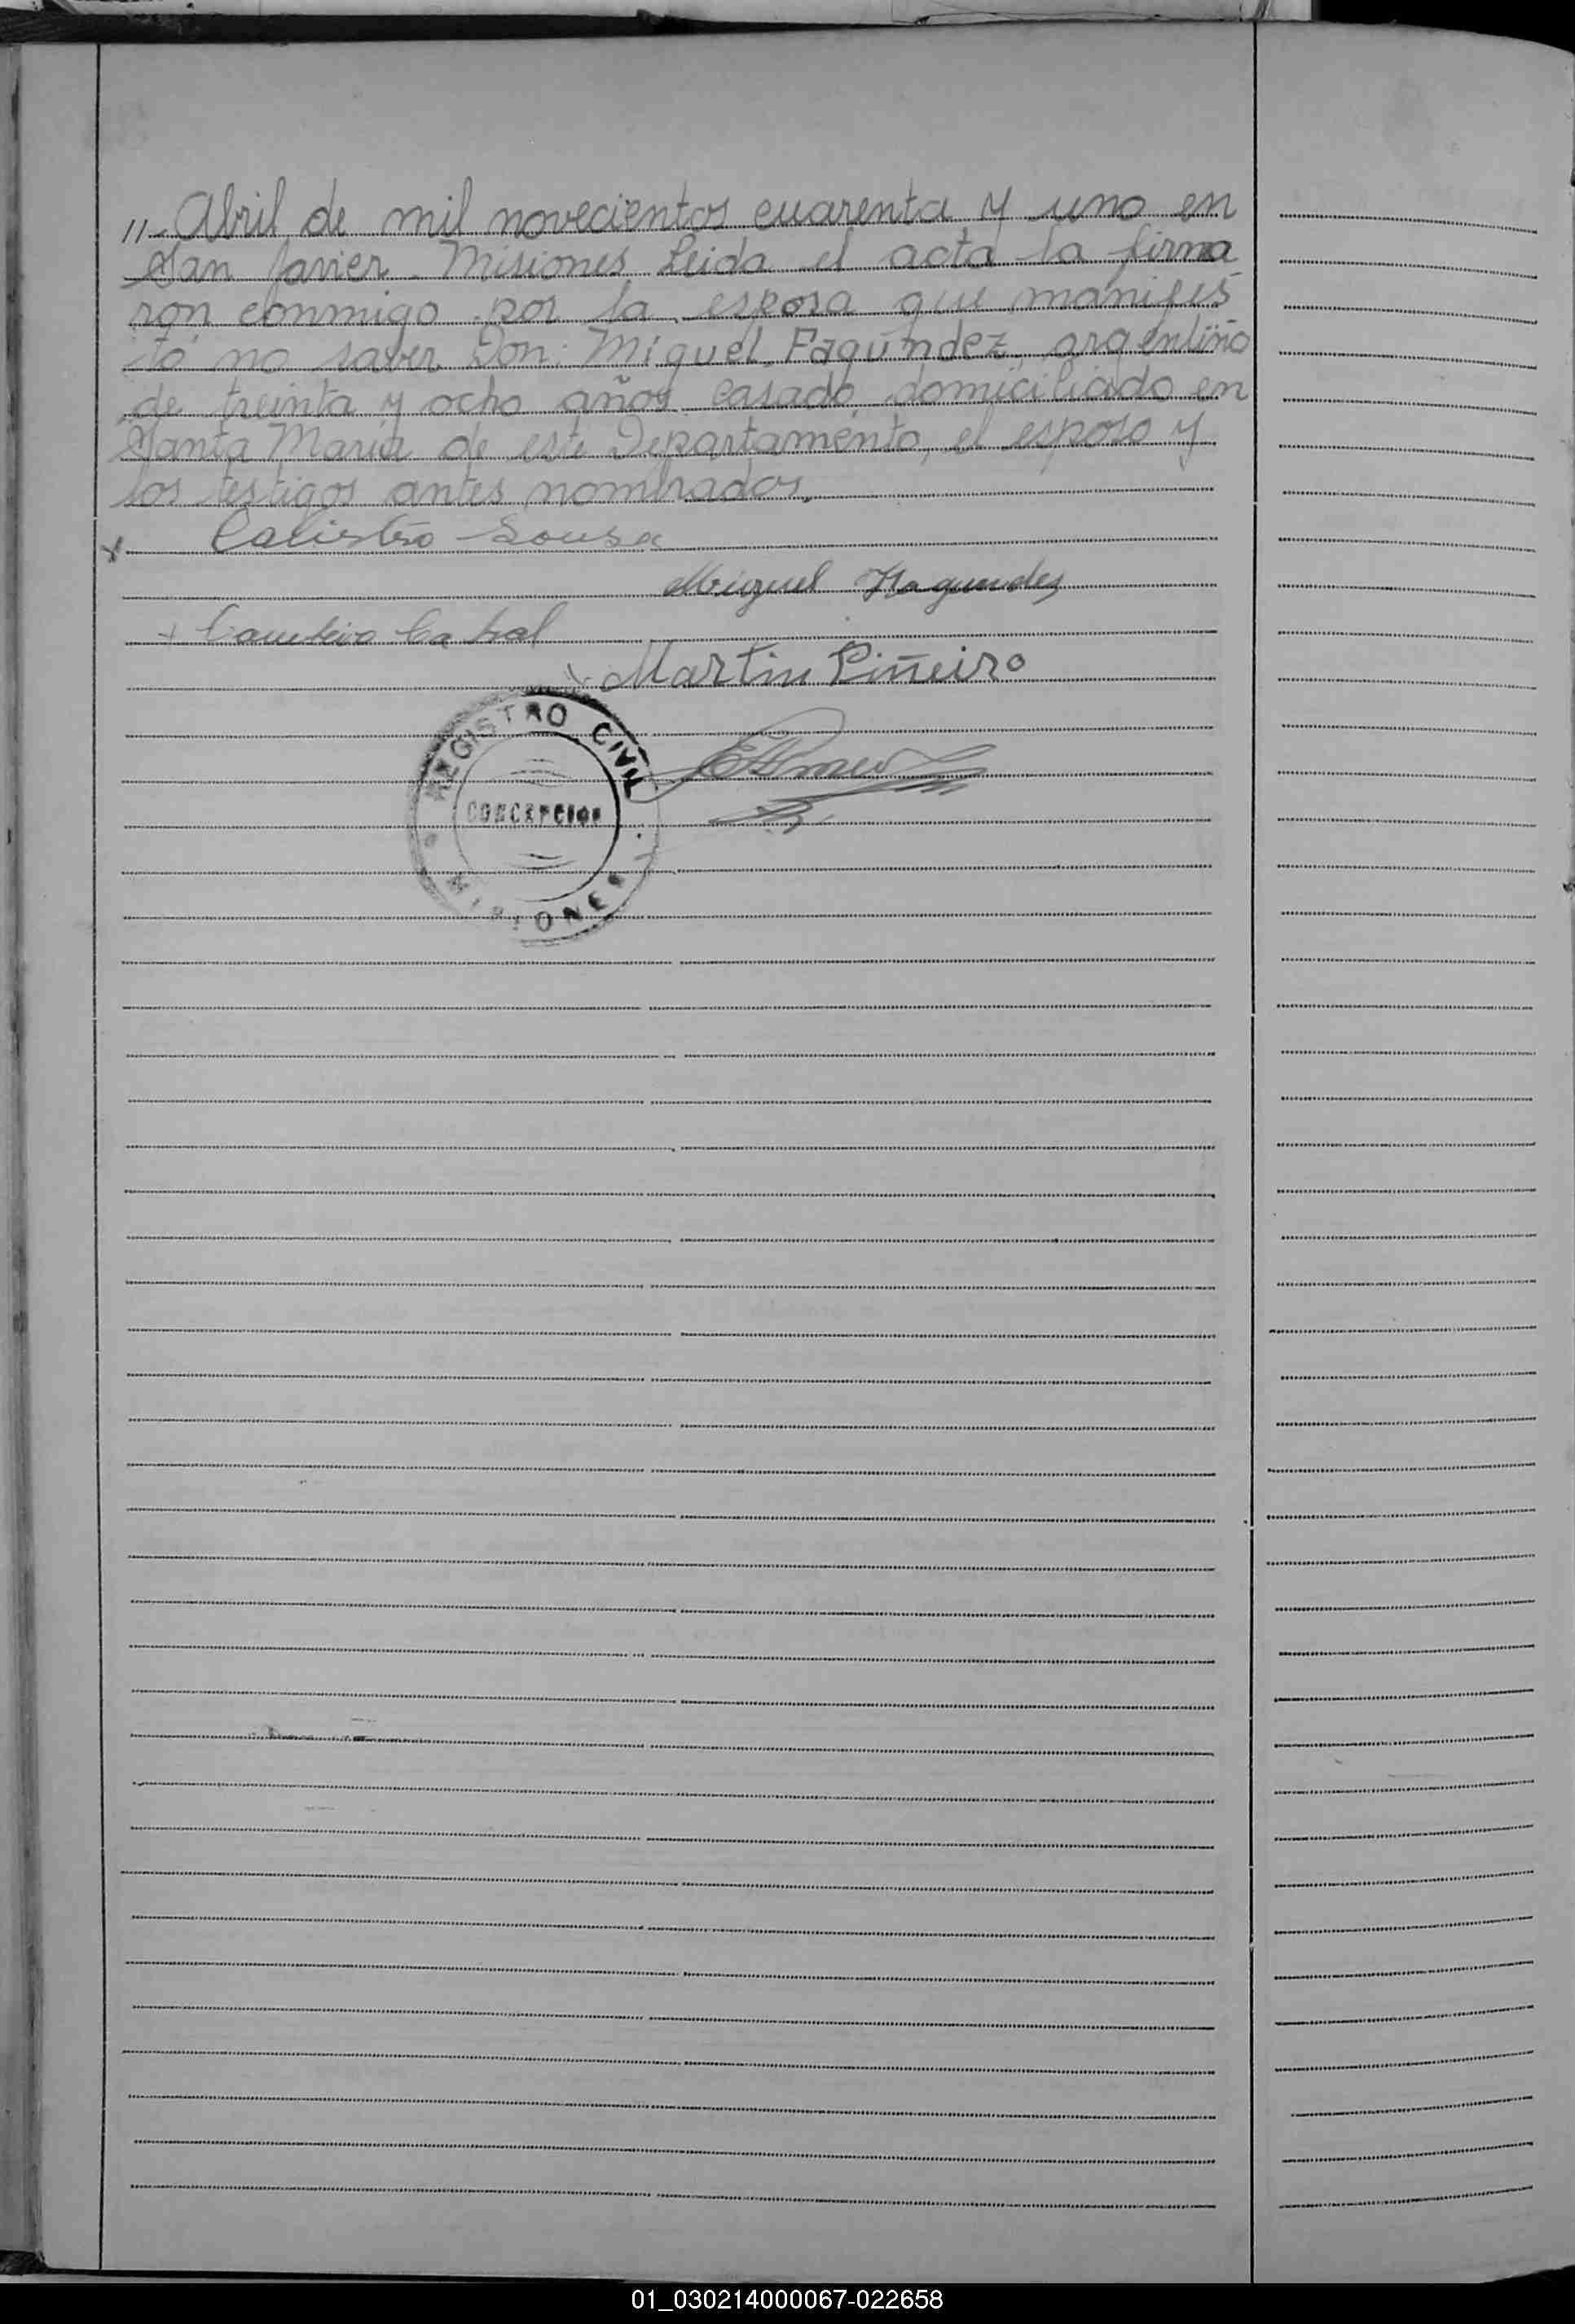 11-Abril de mil novecientos cuarenta y uno en
San Javier - Misiones Leida el acta la firma
ron conmigo por la esposa que manifes
tó no saver Don: Miguel Fagundez, argentino
de treinta y ocho años casado domiciliado en
Santa María de este Departamento, el esposo y
los testigos antes nombrados.
x Calistro Sousa
Miguel Fagundes
+ Cabral
x Martin Piñeiro
REGISTRO CIVIL
CONCEPCION
MISIONES
01_030214000067-022658